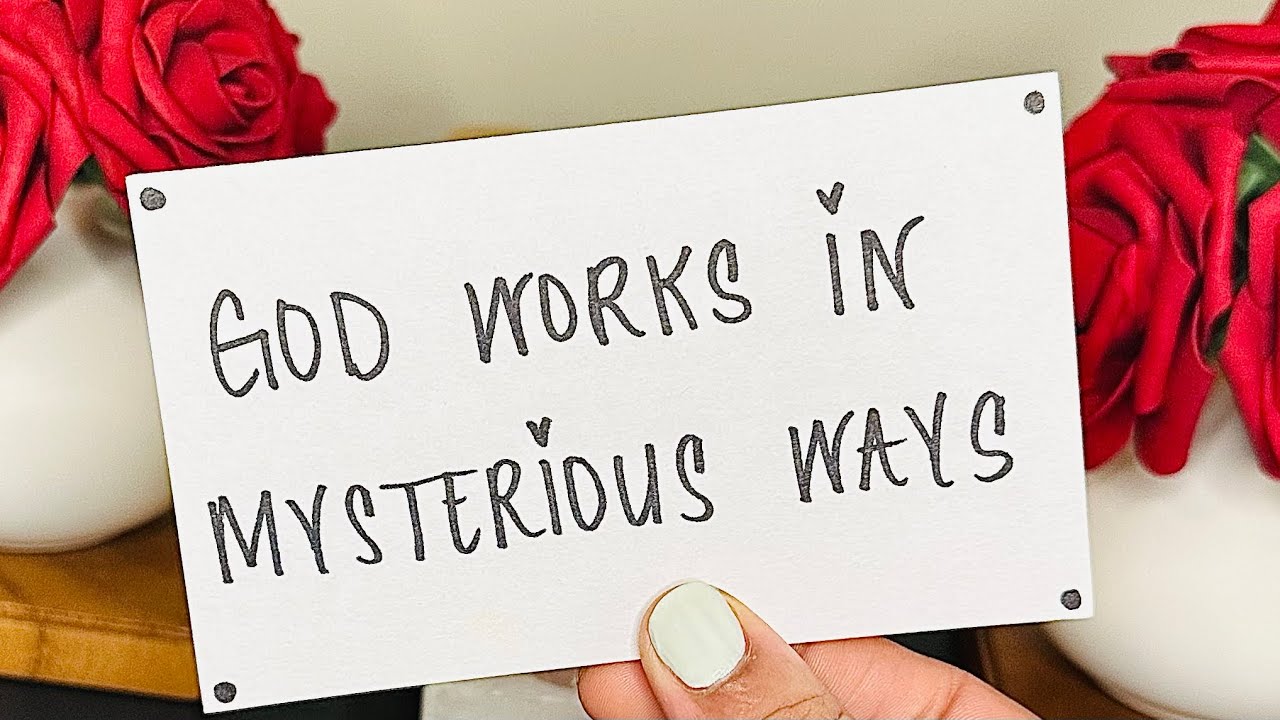 GOD WORKS iN
MYSTERiOUS WAYS